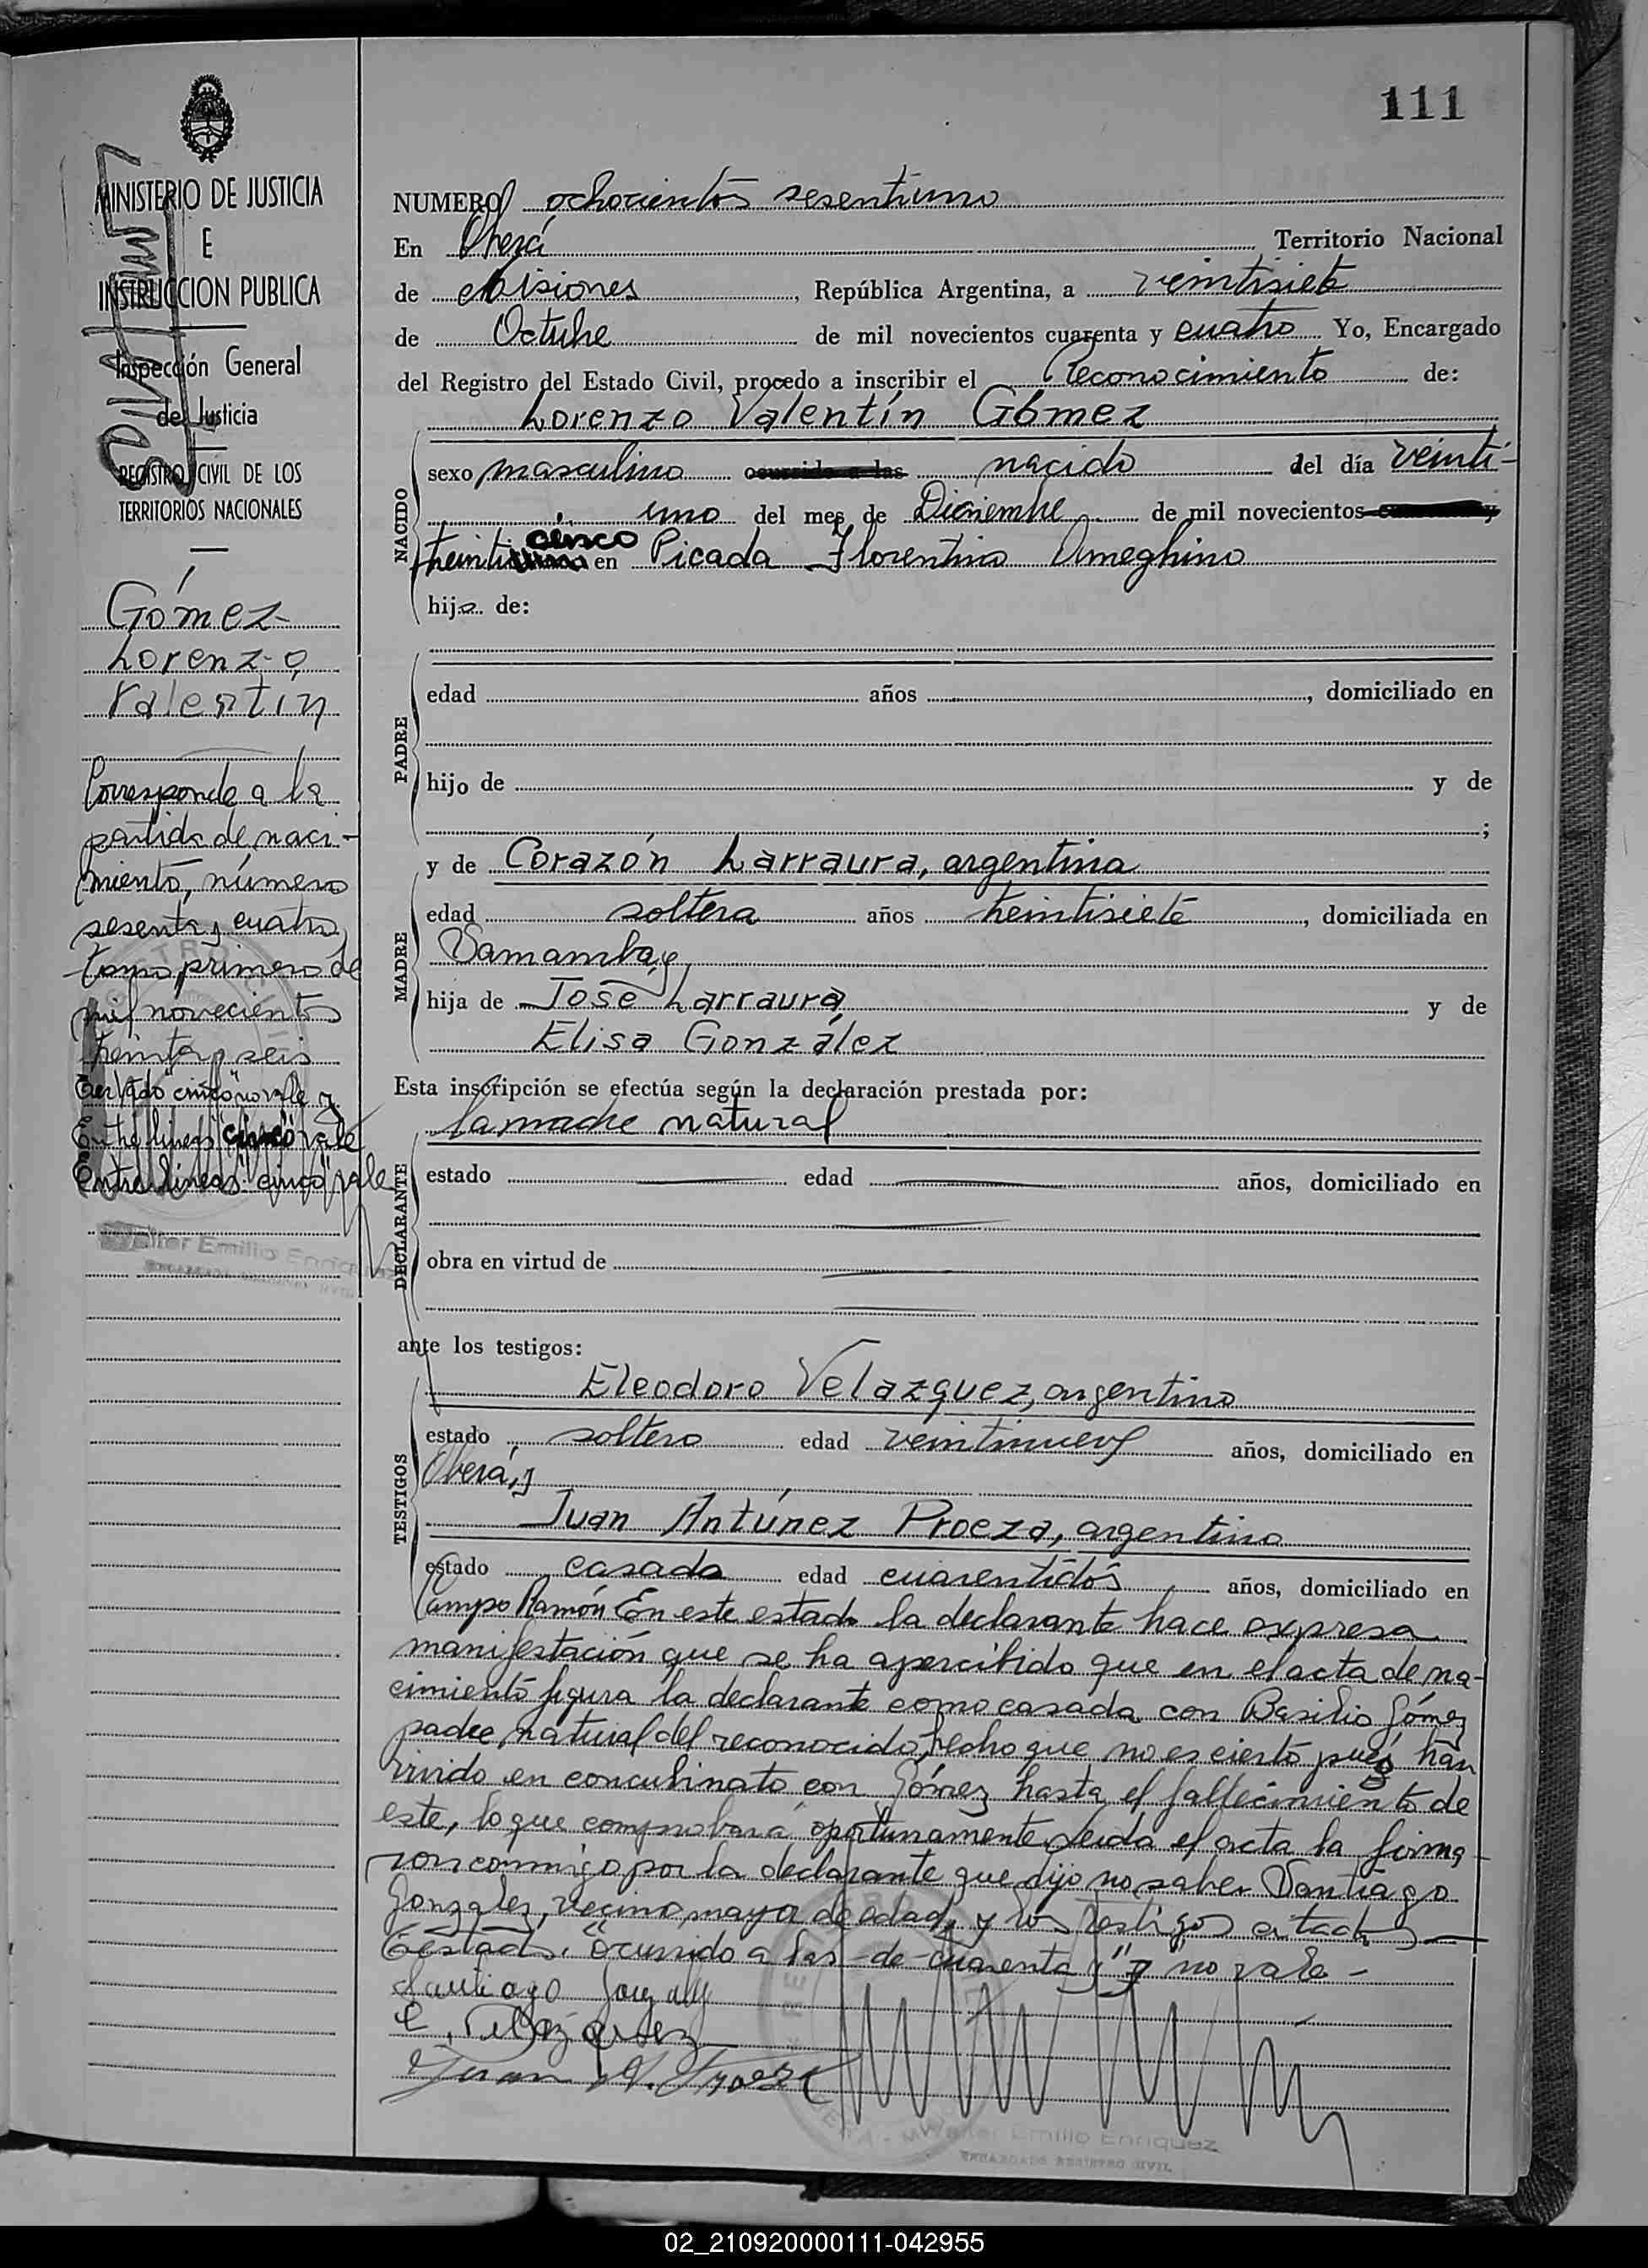 111
MINISTERIO DE JUSTICIA
E
INSTRUCCION PUBLICA
Inspección General
de Justicia
REGISTRO CIVIL DE LOS
TERRITORIOS NACIONALES
Gómez
Lorenzo
Valentín
Corresponde a la
partida de naci-
miento, número
sesenta y cuatro,
tomo primero de
mil novecientos
treinta y seis
Testado "cinco" no vale y
Entre lineas cinco vale
Entre lineas "cinco" vale
Walter Emilio Enriquez
NUMERO ochocientos sesentiuno
En Oberá Territorio Nacional
de Misiones, República Argentina, a veintisiete
de Octubre de mil novecientos cuarenta y cuatro Yo, Encargado
del Registro del Estado Civil, procedo a inscribir el Reconocimiento de:
Lorenzo Valentín Gómez
NACIDO
sexo masculino ocurrido a las nacido del día veinti-
uno del mes de Diciembre de mil novecientos
cinco
treinti en Picada Florentino Ameghino
hijo de:
PADRE
edad años , domiciliado en
hijo de y de
;
y de Corazón Larraura, argentina
MADRE
edad soltera años treintisiete, domiciliada en
Samambay,
hija de José Larraura y de
Elisa González
Esta inscripción se efectúa según la declaración prestada por:
la madre natural
DECLARANTE
estado edad años, domiciliado en
obra en virtud de
ante los testigos:
TESTIGOS
Eleodoro Velazquez, argentino
estado soltero edad veintinueve años, domiciliado en
Oberá, y
Juan Antúnez Proeza, argentino
estado casado edad cuarentidós años, domiciliado en
Campo Ramón En este estado la declarante hace expresa
manifestación que se ha apercibido que en el acta de na-
cimiento figura la declarante como casada con Basilio Gómez
padre natural del reconocido, hecho que no es cierto pues han
vivido en concubinato con Gómez hasta el fallecimiento de
este, lo que comprobará oportunamente. Leída el acta la firma-
ron conmigo por la declarante que dijo no saber Santiago
Gonzalez, vecino, mayor de edad, y los testigos citados
Testado. "Ocurrido a las -de- cuarenta y" "y" no vale -
Santiago Gonzalez
E. Velazquez
Juan A. Proeza
Walter Emilio Enriquez
ENCARGADO REGISTRO CIVIL
02_210920000111-042955